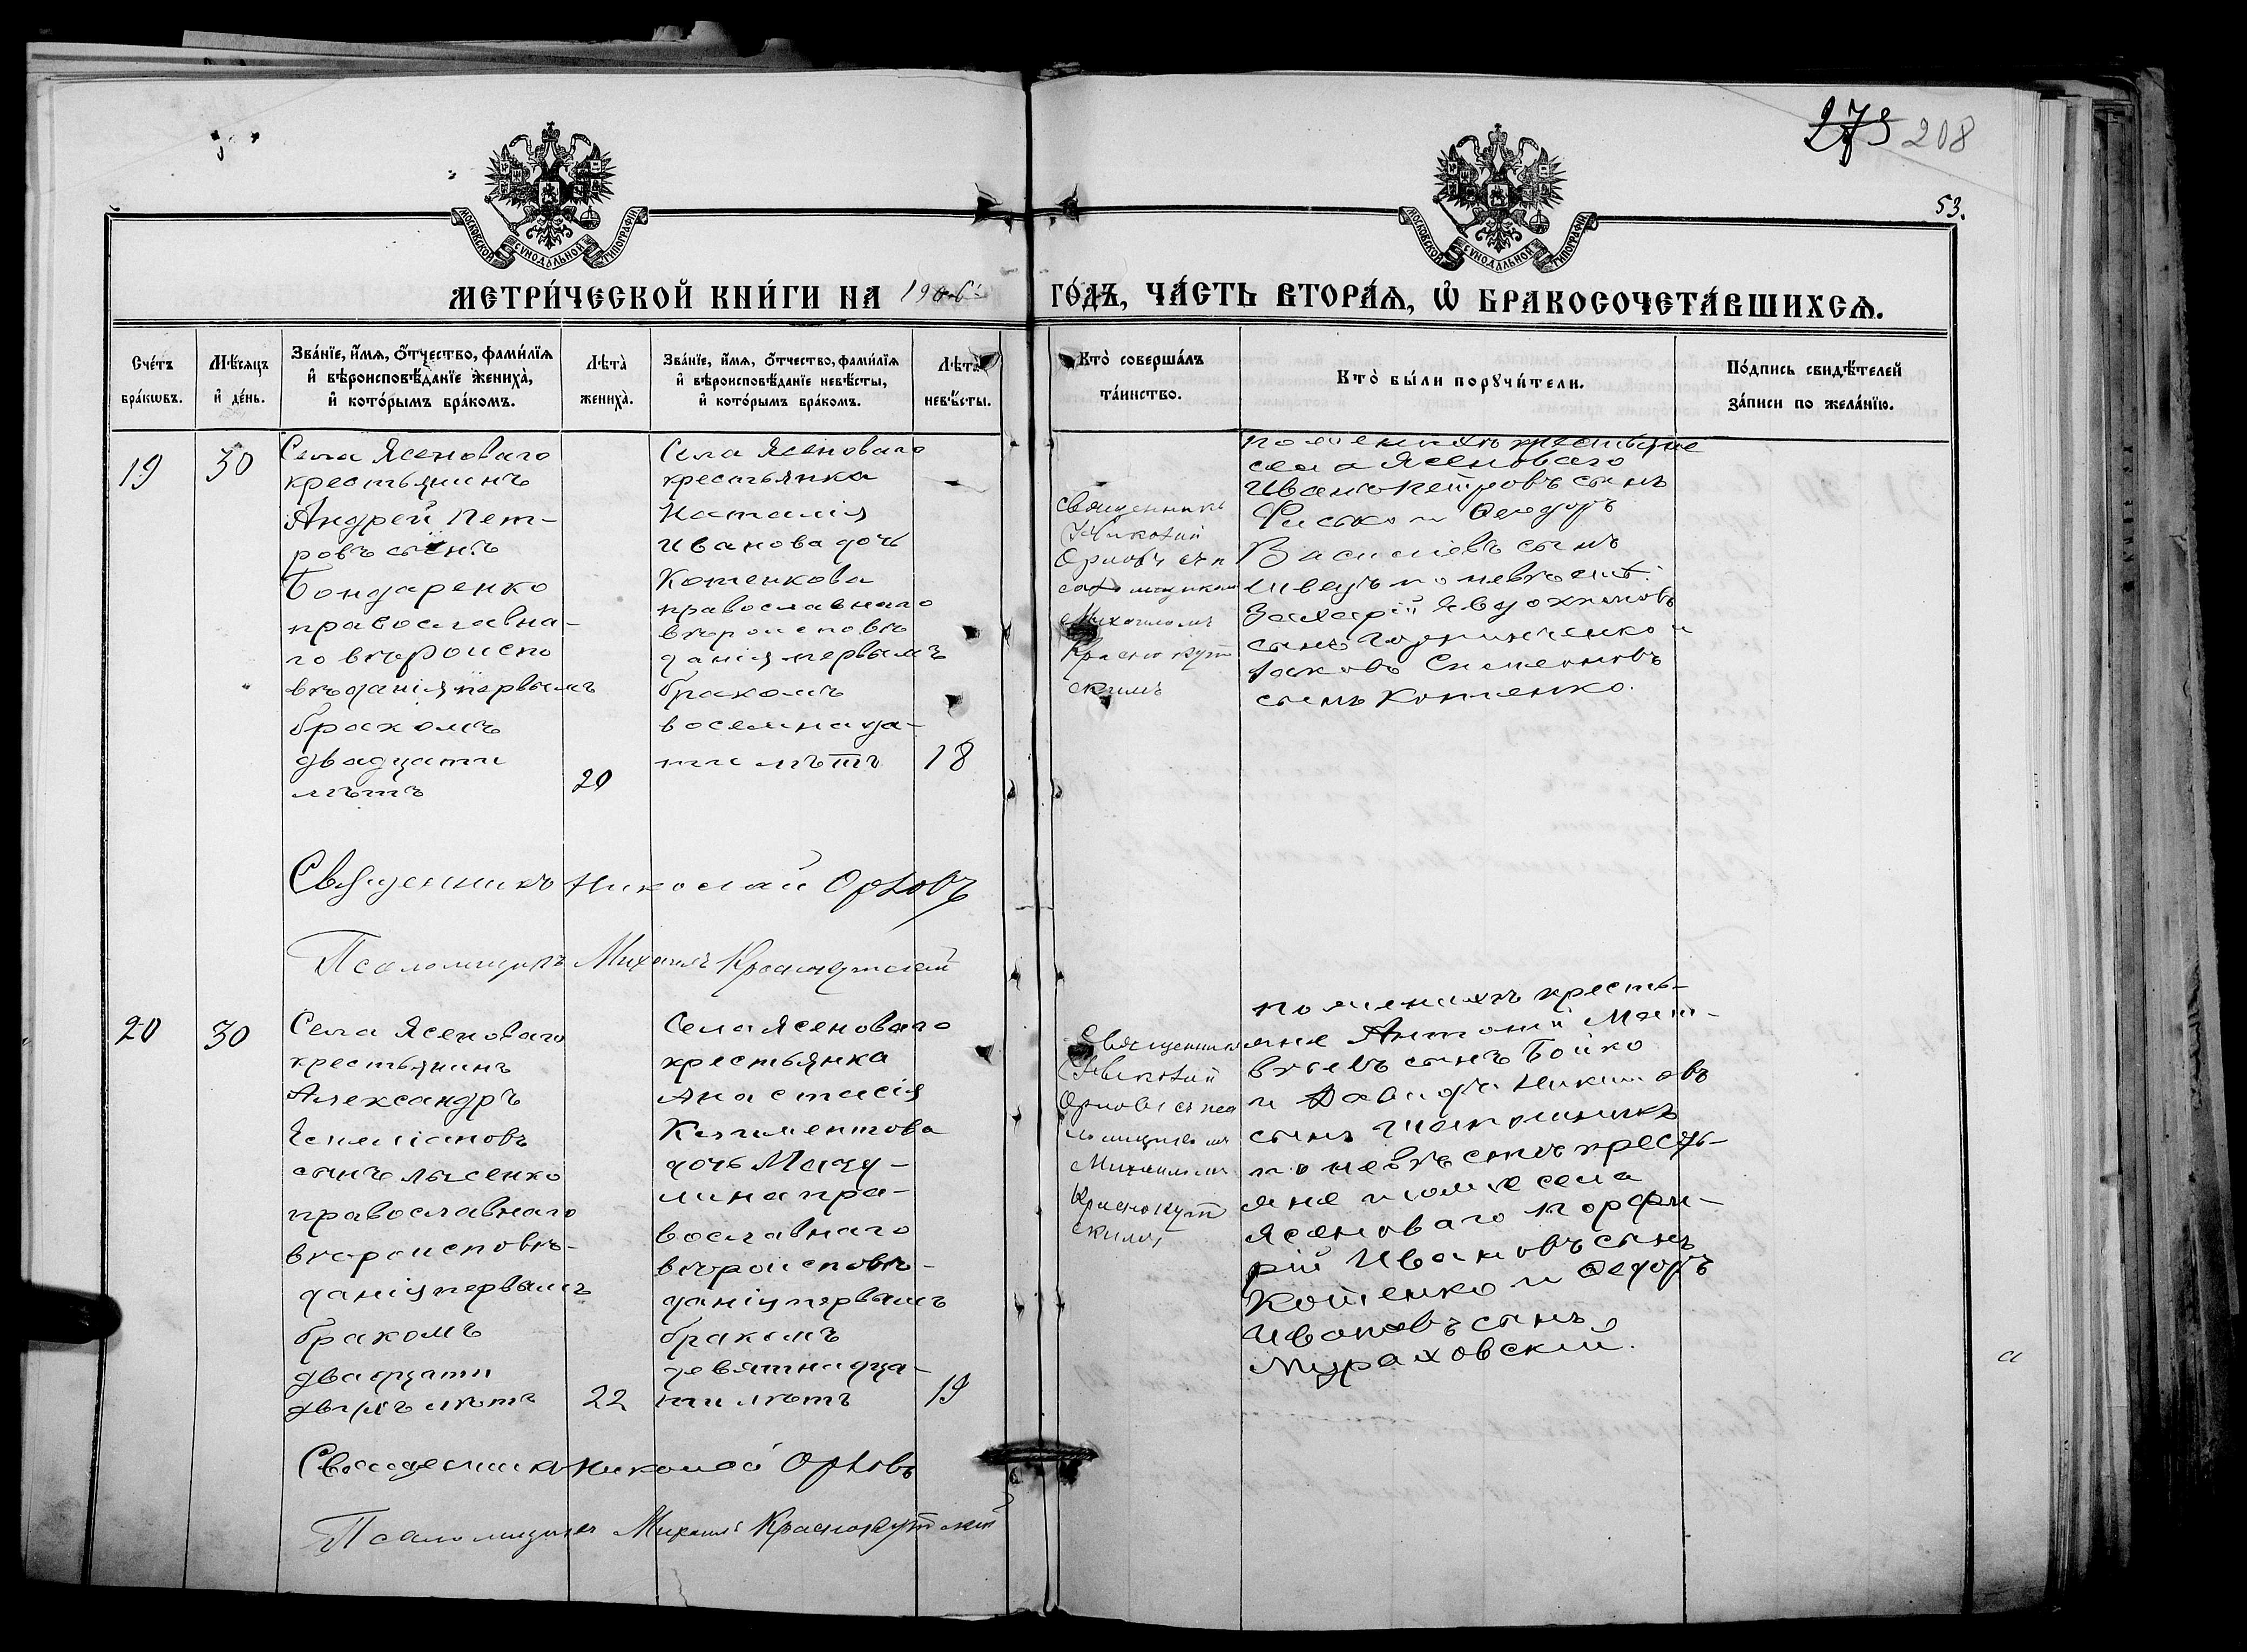 208
53.
МОСКОВСКОЙ СУНОДАЛЬНОЙ ТИПОГРАФІИ
МОСКОВСКОЙ СУНОДАЛЬНОЙ ТИПОГРАФІИ
МЕТРИ́ЧЕСКОЙ КНИ́ГИ НА 1906
ГО́ДЪ, ЧА́СТЬ ВТОРА́Ѧ, Ѡ҆ БРАКОСОЧЕТА́ВШИХСѦ.
Сче́тъ
бра́кѡвъ.
Мѣ́сяцъ
и҆ де́нь.
Зва́нїе, и҆́мѧ, ѻ҆́тчество, фами́лїѧ
и҆ вѣроисповѣ́данїе жениха̀,
и҆ кото́рымъ бра́комъ.
Лѣта̀
жениха̀.
Зва́нїе, и҆́мѧ, ѻ҆́тчество, фами́лїѧ
и҆ вѣроисповѣ́данїе невѣ́сты,
и҆ кото́рымъ бра́комъ.
Лѣта̀
невѣ́сты.
Кто̀ соверша́лъ
та́инство.
Кто̀ бы́ли порꙋчи́тели.
По́дпись свидѣ́телей
за́писи по жела́нїю.
19
30
Села Ясеноваго
крестьянинъ
Андрей Пет-
ровъ сынъ
Бондаренко
православна-
го вѣроиспо
вѣданія первымъ
бракомъ
двадцати
лѣтъ
20
Села Ясеноваго
крестьянка
Наталія
Иванова дочь
Котенкова
православнаго
вѣроисповѣ
данія первымъ
бракомъ
восемнадца-
ти лѣтъ
18
Священникъ
Николай
Орловъ съ п
саломщикомъ
Михаиломъ
Краснокут
скимъ
по женихѣ крестьяне
села Ясеноваго
Иванъ Петровъ сынъ
Фисько и Ѳеодоръ
Василіевъ сынъ
Швецъ по невѣстѣ:
Захарій Явдохимовъ
сынъ и
Яковъ Симеоновъ
сынъ Котенко.
Священникъ Николай Орловъ
Псаломщикъ Михаилъ Краснокутскій
20
30
Села Ясеноваго
крестьянинъ
Александръ
сынъ Лысенко
православнаго
вѣроисповѣ-
данія первымъ
бракомъ
двадцати
двухъ лѣтъ
22
Села Ясеноваго
крестьянка
Анастасія
Климентова
дочь Мазу-
лина пра-
вославнаго
вѣроисповѣ-
данія первымъ
бракомъ
девятнадца-
ти лѣтъ
19
Священникъ
Николай
Орловъ съ пса
ломщикомъ
Михаиломъ
Краснокут
скимъ
по женихѣ кресть-
яне Антоній Мат-
вѣевъ сынъ Бойко
и Давидъ Никитовъ
сынъ
по невѣстѣ кресть-
яне тоже села
Ясеноваго Порфи-
рій Ивановъ сынъ
Котенко и Ѳедоръ
Ивановъ сынъ
Мураховскій.
Священникъ Николай Орловъ
Псаломщикъ Михаилъ Краснокутскій